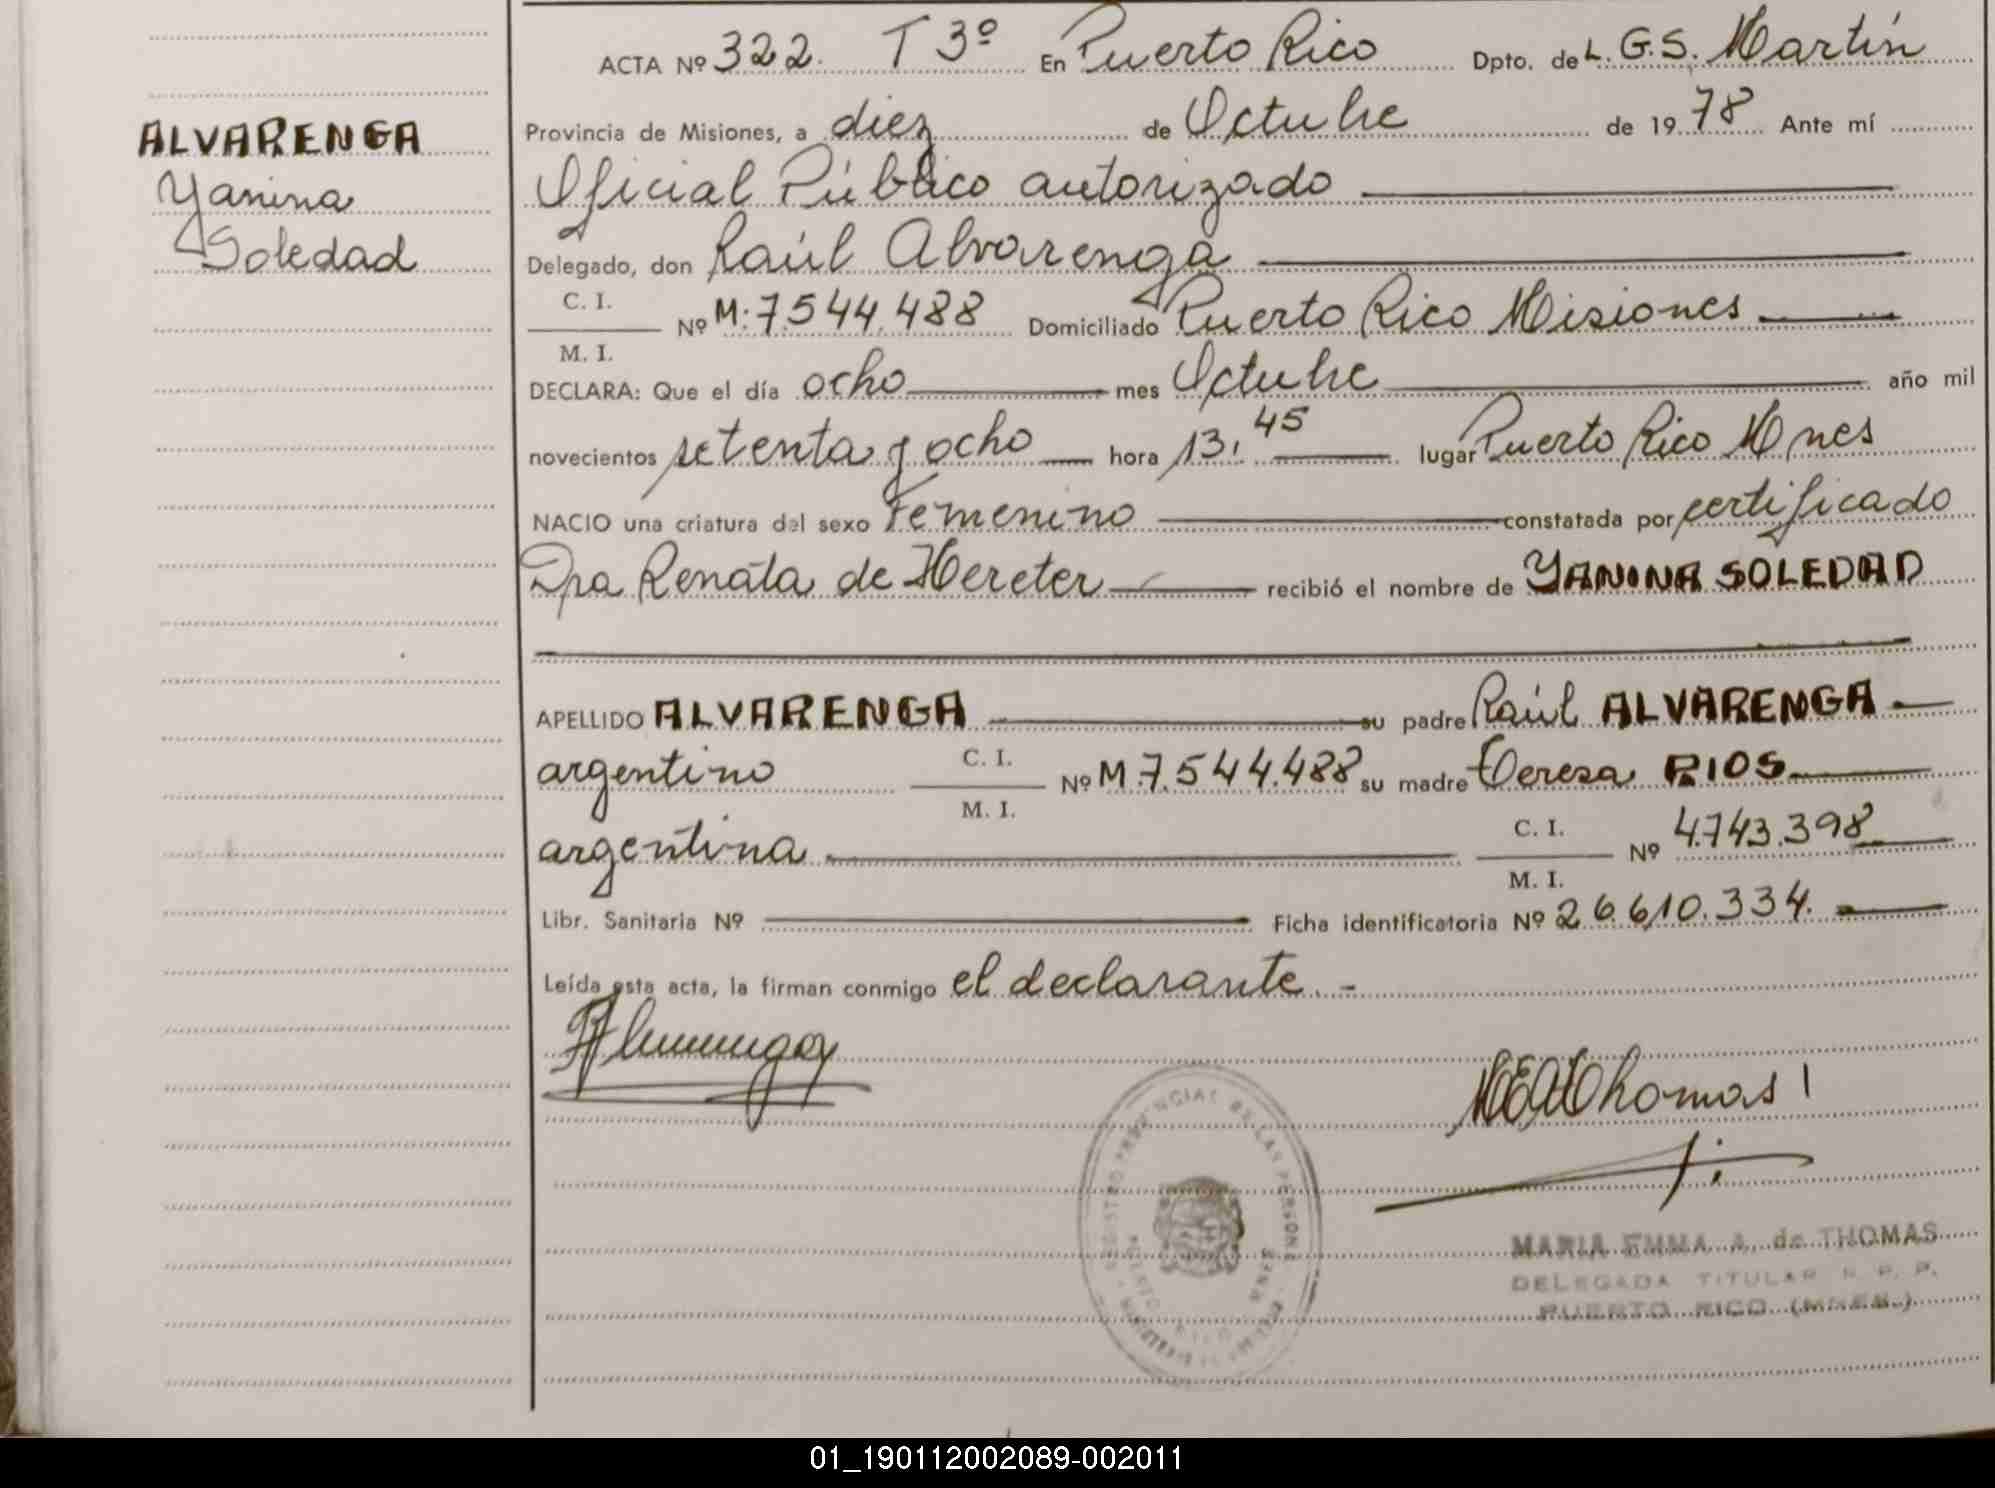 ALVARENGA
Yanina
Soledad
ACTA Nº 322. T 3º En Puerto Rico Dpto. de L. G.S. Martín
Provincia de Misiones, a diez de Octubre de 1978 Ante mí
Oficial Público autorizado
Delegado, don Raúl Alvarenga
C. I.
Nº M. 7.544.488 Domiciliado Puerto Rico Misiones
M. I.
DECLARA: Que el día ocho mes Octubre año mil
novecientos setenta y ocho hora 13.45 lugar Puerto Rico Mnes
NACIO una criatura del sexo Femenino constatada por certificado
Dra Renata de Hereter recibió el nombre de YANINA SOLEDAD
APELLIDO ALVARENGA su padre Raúl ALVARENGA
argentino C. I. Nº M.7.544.488 su madre Teresa RIOS
M. I.
argentina C. I. Nº 4.743.398
M. I.
Libr. Sanitaria Nº Ficha identificatoria Nº 26.610.334.
Leída esta acta, la firman conmigo el declarante. -
MEAThomas
REGISTRO PROVINCIAL DE LAS PERSONAS
PUERTO RICO MNES
MARIA EMMA A. de THOMAS
DELEGADA TITULAR R. P. P.
PUERTO RICO (MNES.)
01_190112002089-002011